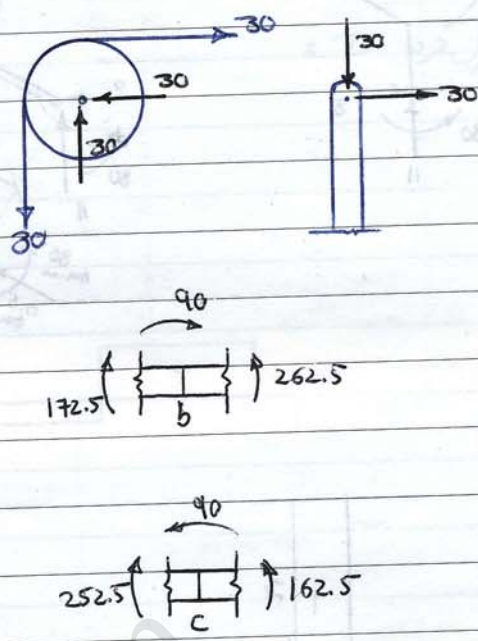 30
30
30
30
30
30
90
172.5
262.5
b
90
252.5
162.5
c